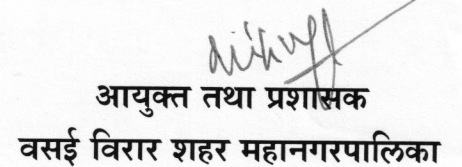 आयुक्त तथा प्रशासक
वसई विरार शहर महानगरपालिका